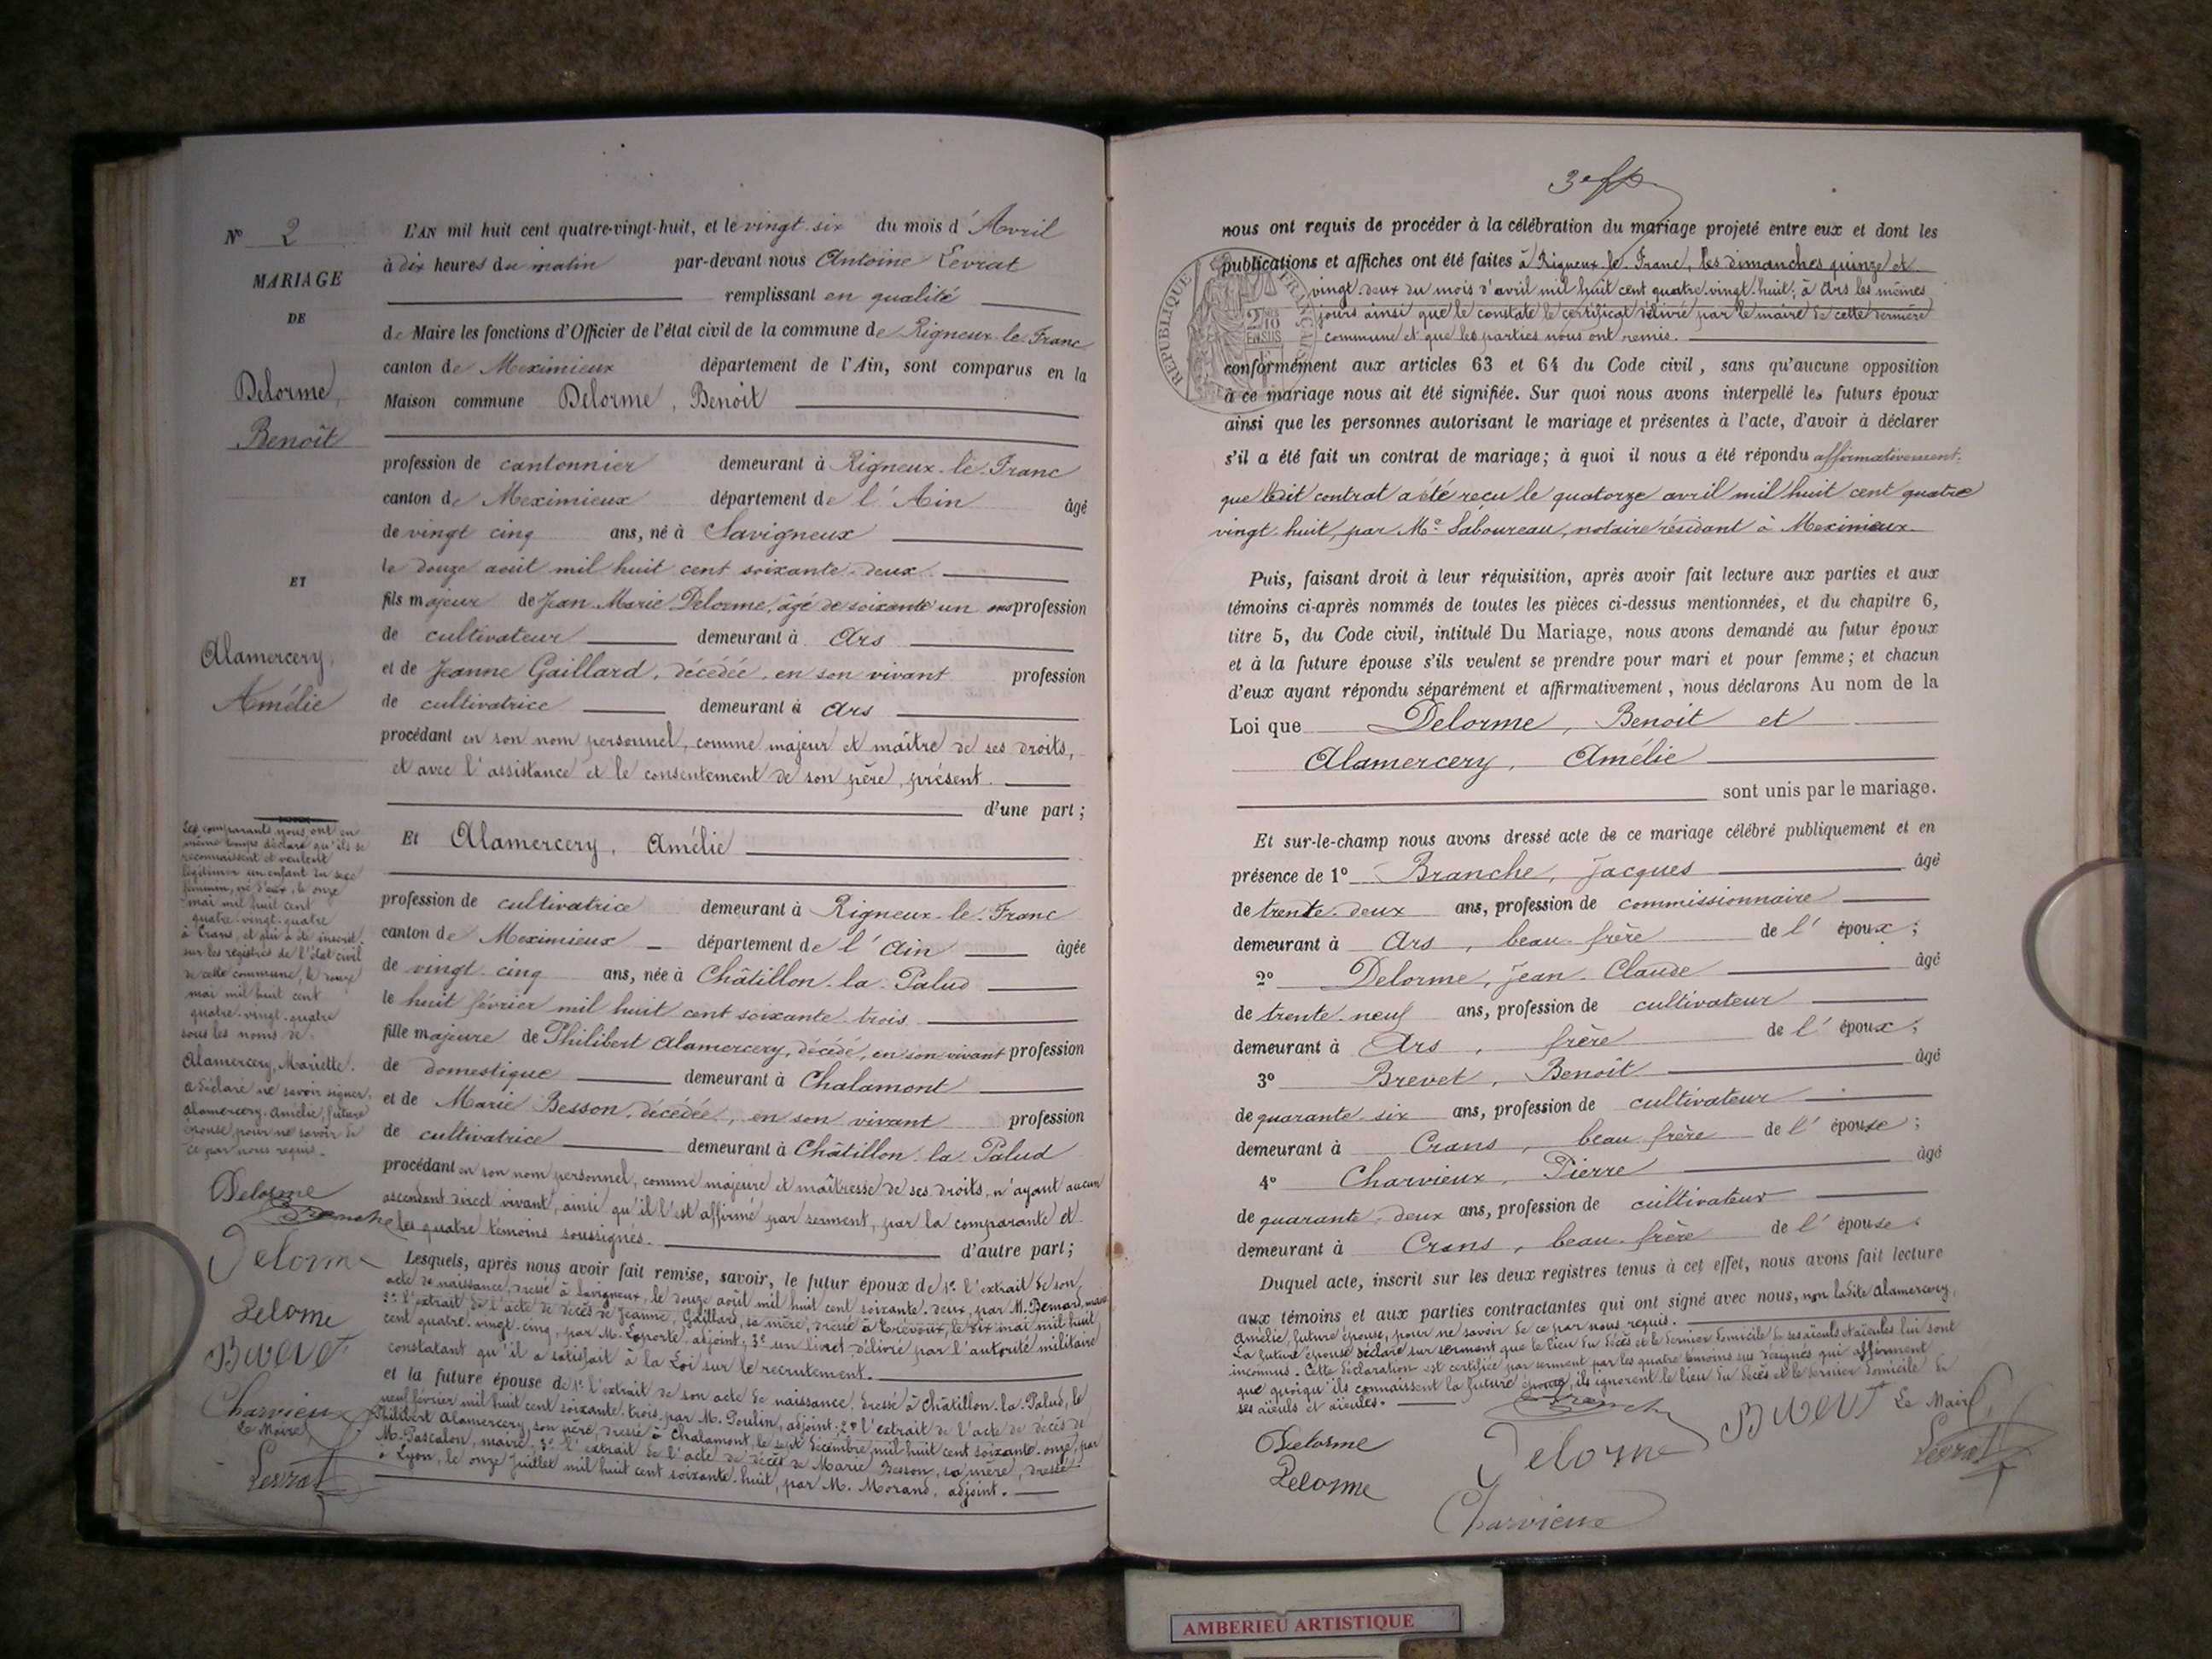 N° 2
MARIAGE
DE
Delorme,
Benoît
ET
Alamercery,
Amélie
Les comparants nous ont en
même temps déclaré qu'ils se
reconnaissent et veulent
légitimer un enfant du sexe
féminin, né d'eux, le onze
mai mil huit cent
quatre-vingt-quatre
à Crans, et qui a été inscrit
sur les registres de l'état civil
de cette commune, le douze
mai mil huit cent
quatre-vingt-quatre
sous les noms de
Alamercery, Mariette.
a déclaré ne savoir signer,
Alamercery Amélie, future
épouse, pour ne savoir de
ce par nous requis.
Delorme
Branche
Delorme
Delorme
Brevet
Charvieux
Le Maire,
Levrat
L'AN mil huit cent quatre-vingt-huit, et le vingt-six du mois d'Avril
à dix heures du matin par-devant nous Antoine Levrat
remplissant en qualité
de Maire les fonctions d'Officier de l'état civil de la commune de Rigneux-le-Franc
canton de Meximieux département de l'Ain, sont comparus en la
Maison commune Delorme, Benoît
profession de cantonnier demeurant à Rigneux-le-Franc
canton de Meximieux département de l'Ain âgé
de vingt cinq ans, né à Savigneux
le douze août mil huit cent soixante-deux
fils majeur de Jean Marie Delorme, âgé de soixante un ans profession
de cultivateur demeurant à Ars
et de Jeanne Gaillard, décédée, en son vivant profession
de cultivatrice demeurant à Ars
procédant en son nom personnel, comme majeur et maître de ses droits,
et avec l'assistance et le consentement de son père, présent.
d'une part;
Et Alamercery, Amélie
profession de cultivatrice demeurant à Rigneux-le-Franc
canton de Meximieux département de l'Ain âgée
de vingt-cinq ans, née à Châtillon-la-Palud
le huit février mil huit cent soixante-trois
fille majeure de Philibert Alamercery, décédé, en son vivant profession
de domestique demeurant à Chalamont
et de Marie Besson, décédée, en son vivant profession
de cultivatrice demeurant à Châtillon-la-Palud
procédant en son nom personnel, comme majeure et maîtresse de ses droits, n'ayant aucun
ascendant direct vivant, ainsi qu'il l'est affirmé par serment, par la comparante et
les quatre témoins soussignés.
d'autre part;
Lesquels, après nous avoir fait remise, savoir, le futur époux de 1° l'extrait de son
acte de naissance, dressé à Savigneux, le douze août mil huit cent soixante-deux, par M. Bernard, maire
2° l'extrait de l'acte de décès de Jeanne Gaillard, sa mère, dressé à Trévoux, le dix mai mil huit
cent quatre-vingt-cinq, par M. Laporte, adjoint; 3° un livret délivré par l'autorité militaire
constatant qu'il a satisfait à la Loi sur le recrutement.
et la future épouse de 1° l'extrait de son acte de naissance, dressé à Châtillon-la-Palud, le
neuf février mil huit cent soixante-trois par M. Poulin, adjoint; 2° l'extrait de l'acte de décès de
Philibert Alamercery, son père, dressé à Chalamont, le sept décembre mil huit cent soixante-onze, par
M. Pascalon, maire; 3° l'extrait de l'acte de décès de Marie Besson, sa mère, dressé
à Lyon, le onze juillet mil huit cent soixante-huit, par M. Morand, adjoint.
nous ont requis de procéder à la célébration du mariage projeté entre eux et dont les
publications et affiches ont été faites à Rigneux-le-Franc, les dimanches quinze et
vingt-deux du mois d'avril mil huit cent quatre-vingt-huit; à Ars les mêmes
jours ainsi que le constate le certificat délivré par le maire de cette dernière
commune et que les parties nous ont remis.
RÉPUBLIQUE FRANÇAISE
2/10 EN SUS
conformément aux articles 63 et 64 du Code civil, sans qu'aucune opposition
à ce mariage nous ait été signifiée. Sur quoi nous avons interpellé les futurs époux
ainsi que les personnes autorisant le mariage et présentes à l'acte, d'avoir à déclarer
s'il a été fait un contrat de mariage; à quoi il nous a été répondu affirmativement
que ledit contrat a été reçu le quatorze avril mil huit cent quatre
vingt-huit, par Me Laboureau, notaire résidant à Meximieux.
Puis, faisant droit à leur réquisition, après avoir fait lecture aux parties et aux
témoins ci-après nommés de toutes les pièces ci-dessus mentionnées, et du chapitre 6,
titre 5, du Code civil, intitulé Du Mariage, nous avons demandé au futur époux
et à la future épouse s'ils veulent se prendre pour mari et pour femme; et chacun
d'eux ayant répondu séparément et affirmativement, nous déclarons Au nom de la
Loi que Delorme, Benoît et
Alamercery, Amélie
sont unis par le mariage.
Et sur-le-champ nous avons dressé acte de ce mariage célébré publiquement et en
présence de 1° Branche, Jacques âgé
de trente-deux ans, profession de commissionnaire
demeurant à Ars, beau-frère de l'époux;
2° Delorme, Jean-Claude âgé
de trente-neuf ans, profession de cultivateur
demeurant à Ars, frère de l'époux;
3° Brevet, Benoît âgé
de quarante-six ans, profession de cultivateur
demeurant à Crans, beau-frère de l'épouse;
4° Charvieux, Pierre âgé
de quarante-deux ans, profession de cultivateur
demeurant à Crans, beau-frère de l'épouse.
Duquel acte, inscrit sur les deux registres tenus à cet effet, nous avons fait lecture
aux témoins et aux parties contractantes qui ont signé avec nous, non ladite Alamercery,
Amélie, future épouse, pour ne savoir de ce par nous requis.
La future épouse déclare sur serment que le lieu du décès et le dernier domicile de ses aïeuls et aïeules lui sont
inconnus. Cette déclaration est certifiée par serment par les quatre témoins sus désignés qui affirment
que quoiqu'ils connaissent la future épouse, ils ignorent le lieu du décès et le dernier domicile de
ses aïeuls et aïeules.
Branche
Brevet
Le Maire,
Levrat
Delorme
Delorme
Delorme
Charvieux
AMBERIEU ARTISTIQUE